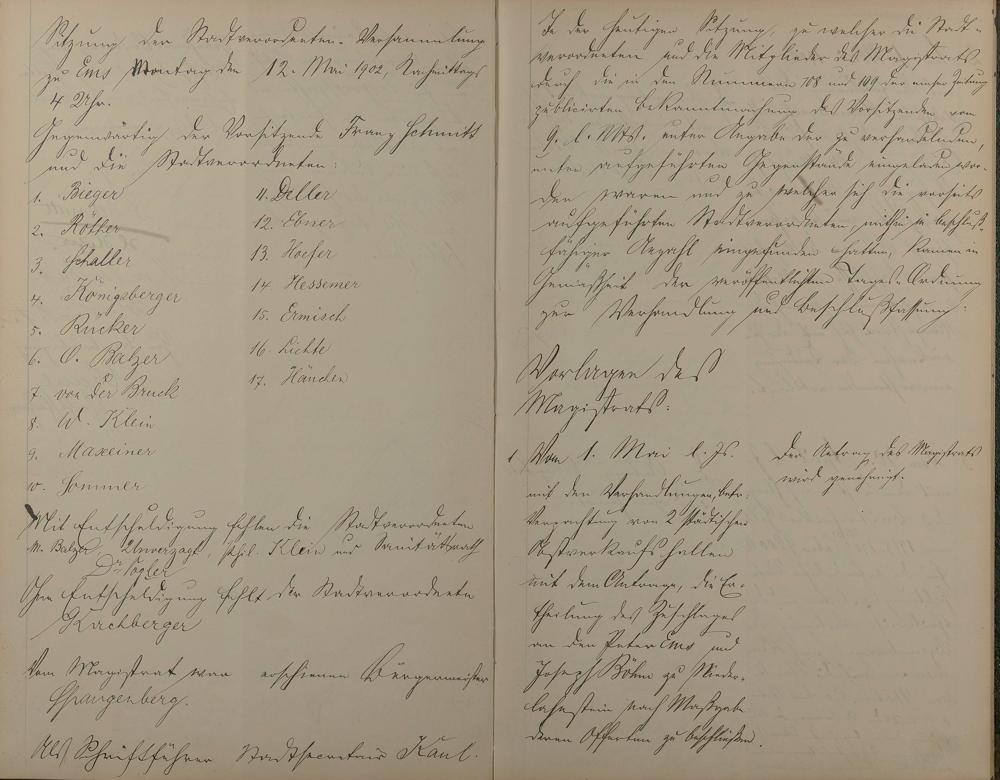 Sitzung der Stadtverordneten-Versammlung
zu Ems Montag den 12. Mai 1902, Nachmittags
4 Uhr.
Gegenwärtig der Vorsitzende Franz Schmitt
und die Stadtverordneten:
1. Bieger
2. Röther
3. Schaller
4. Königsberger
5. Rücker
6. O. Balzer
7. von der Bruck
8. W. Klein
9. Maxeiner
10. Sommer
11. Deller
12. Ebner
13. Hoefer
14. Hessemer
15. Ermisch
16. Lichte
17. Hänchen
Mit Entschuldigung fehlen die Stadtverordneten
M. Balzer, Unverzagt, Phil. Klein und Sanitätsrath
Dr. Vogler
Ohne Entschuldigung fehlt der Stadtverordnete
Kirchberger
Vom Magistrat war erschienen Bürgermeister
Spangenberg.
Als Schriftführer Stadtsecretair Kaul.
In der heutigen Sitzung, zu welcher die Stadt-
verordneten und die Mitglieder des Magistrats
durch die in den Nummern 108 und 109 der Emser Zeitung
publicirten Bekanntmachung des Vorsitzenden vom
9. l. Mts. unter Angabe der zu verhandelnden,
unten aufgeführten Gegenstände eingeladen wor-
den waren und zu welcher sich die vorseits
aufgeführten Stadtverordneten, mithin in beschluß-
fähiger Anzahl eingefunden hatten, kamen in
Gemäßheit der veröffentlichten Tages-Ordnung
zur Verhandlung und Beschlußfassung:
Vorlagen des
Magistrats:
1 Vom 1. Mai l. Js.
mit den Verhandlungen, betr.
Verpachtung von 2 städtischen
Obstverkaufshallen
mit dem Antrage, die Er-
theilung des Zuschlages
an den Peter Ems und
Joseph Böhm zu Nieder-
lahnstein nach Maßgabe
deren Offerten zu beschließen.
Der Antrag des Magistrats
wird genehmigt.